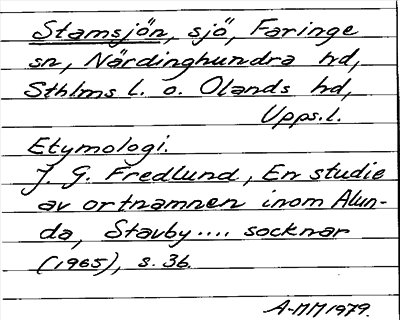 Stamsjön, sjö, Faringe
sn, Närdinghundra hd,
Sthlms l. o. Olands hd,
Upps. l.
Etymologi.
J. G. Fredlund, En studie
av ortnamnen inom Alun-
da, Stavby.... socknar
(1965), s. 36.
A-MM 1979.